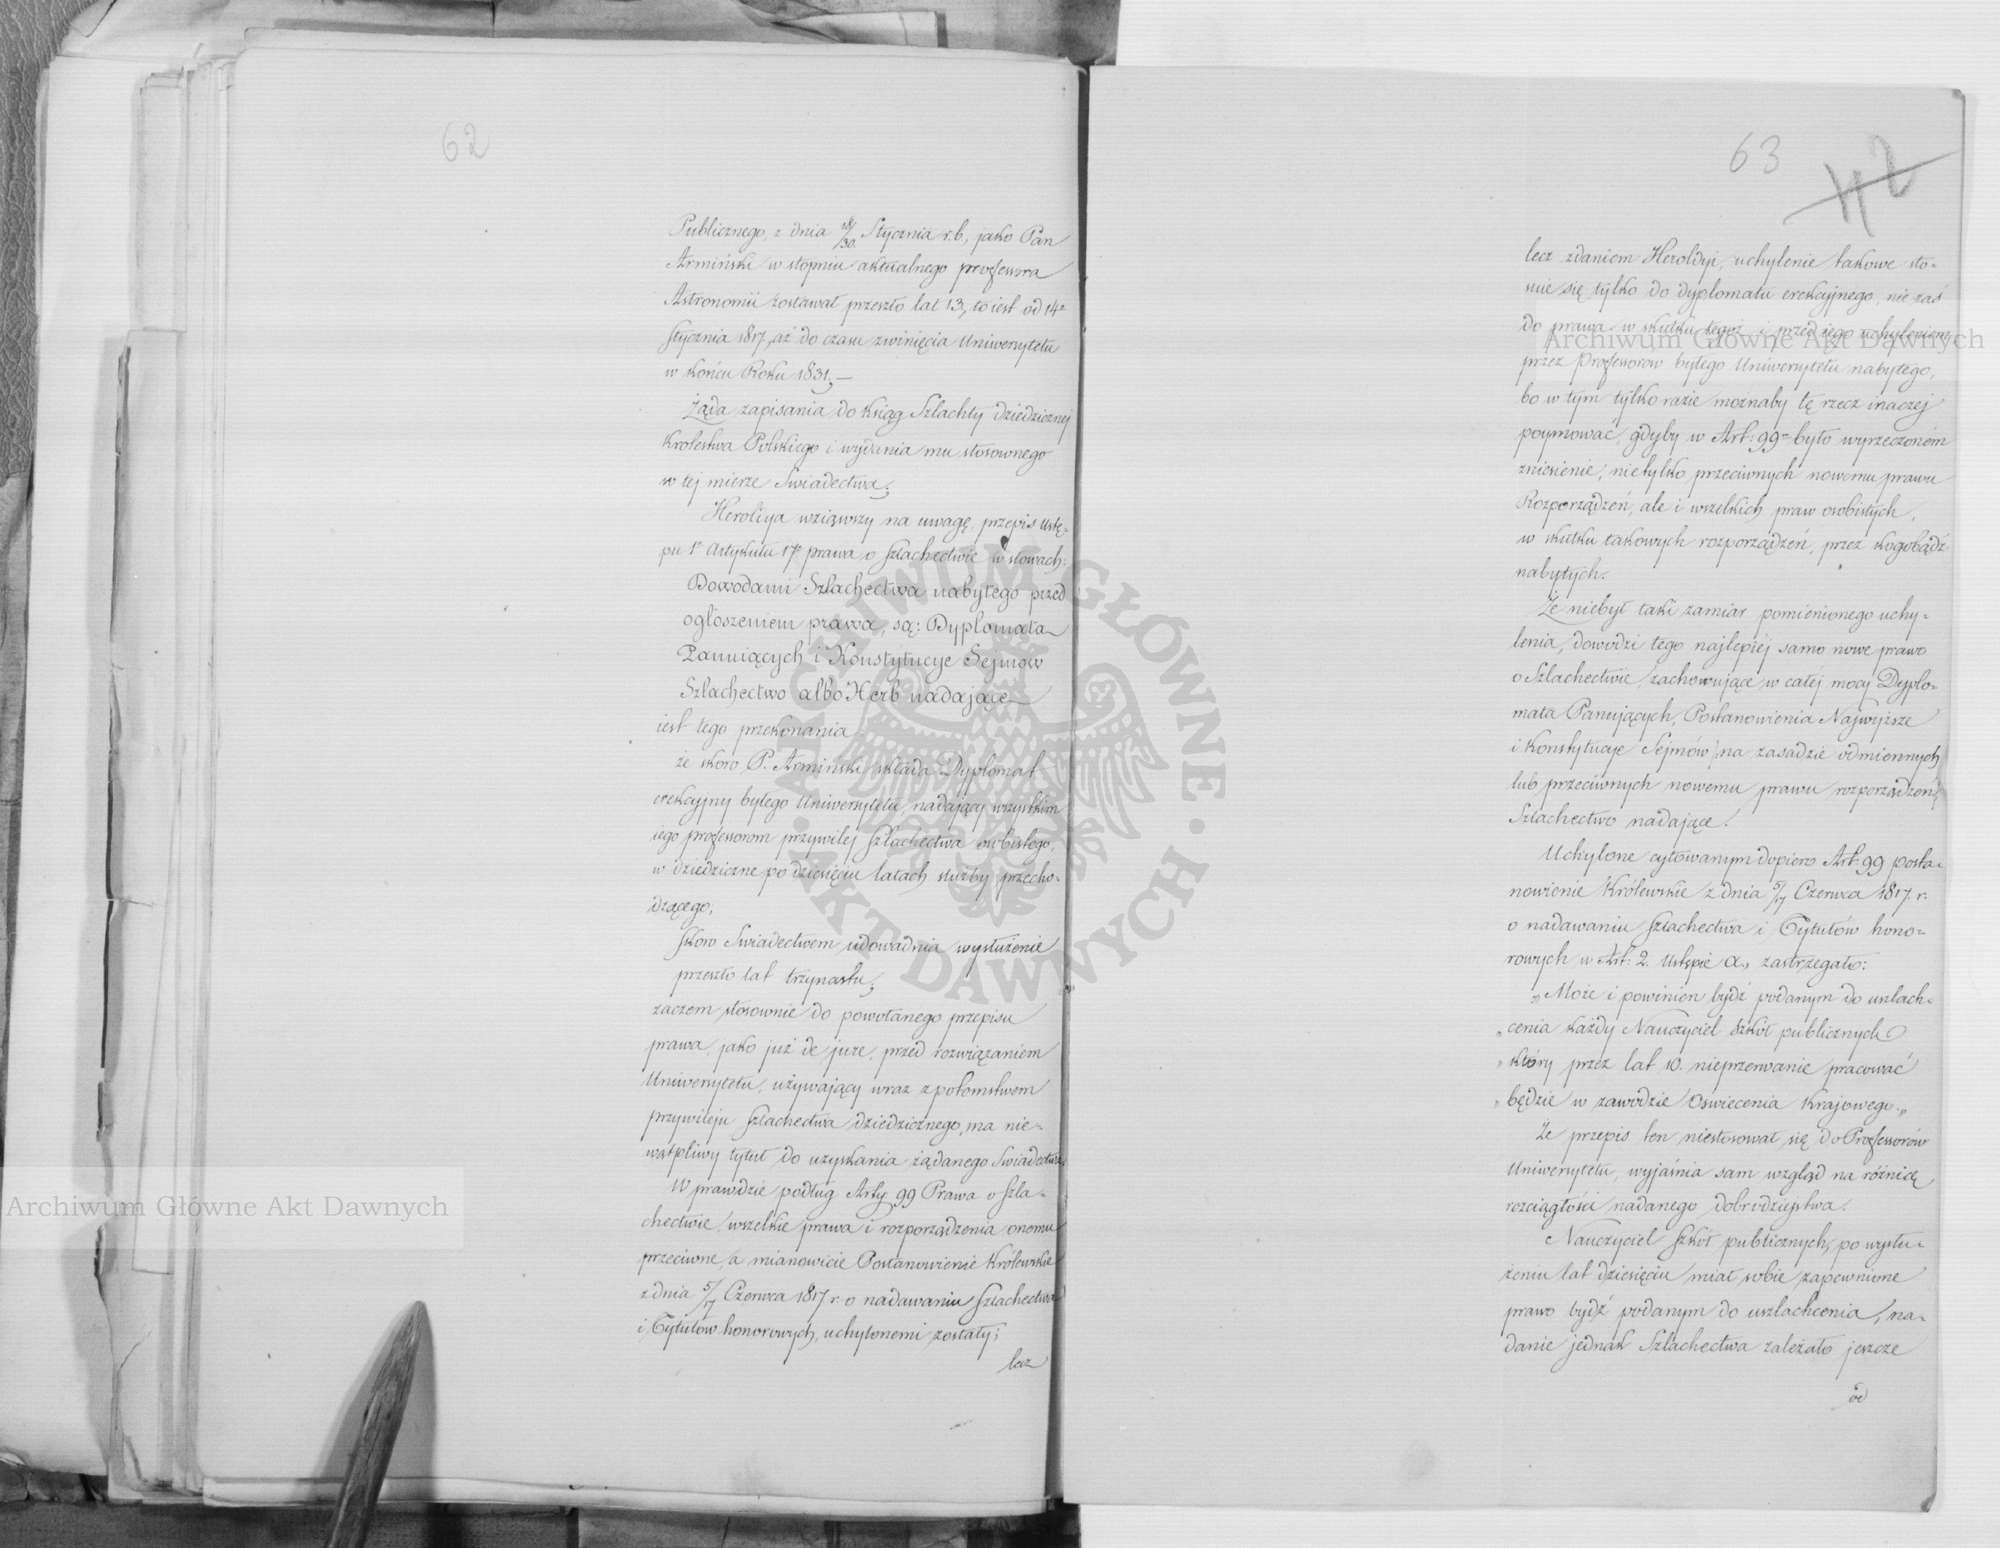 62
Publicznego, z dnia 18/30 Stycznia r.b, jako Pan
Armiński w stopniu aktualnego professora
Astronomii zostawał przeszło lat 13, to iest od 14º
Stycznia 1817, aż do czasu zwinięcia Uniwersytetu
w końcu Roku 1831,—
Żąda zapisania do ksiąg Szlachty dziedzicznej
Krolestwa Polskiego i wydania mu stosownego
w tej mierze Świadectwa;
Heroldya wziąwszy na uwagę przepis Ustę-
pu 1º Artykułu 17º prawa o Szlachectwie w słowach:
Dowodami Szlachectwa nabytego przed
ogłoszeniem prawa, są: Dyplomata
Panuiących i Konstytucye Sejmow
Szlachectwo albo Herb nadające
iest tego przekonania
że skoro P. Armiński składa Dyplomat
erekcyjny byłego Uniwersytetu, nadający wszystkim
iego professorom przywilej Szlachectwa osobistego,
w dziedziczne po dziesięciu latach służby przecho-
dzącego,
skoro Świadectwem udowadnia wysłużenie
przeszło lat trzynastu;
zaczem stosownie do powołanego przepisu
prawa, jako już de jure, przed rozwiązaniem
Uniwersytetu, używający wraz z potomstwem
przywileju Szlachectwa dziedzicznego, ma nie-
wątpliwy tytuł do uzyskania żądanego Świadectwa.
Wprawdzie podług Arty 99 Prawa o Szla-
chectwie, wszelkie prawa i rozporządzenia onemu
przeciwne, a mianowicie Postanowienie Królewskie
z dnia 5/17 Czerwca 1817 r. o nadawaniu Szlachectwa
i Tytułow honorowych, uchylonemi zostały;
lecz
63
42
lecz zdaniem Heroldyi, uchylenie takowe sto-
suie się tylko do dyplomatu erekcyjnego, nie zaś
do prawa w skutku tegoż i przed iego uchyleniem
przez Professorow byłego Uniwersytetu nabytego,
bo w tym tylko razie możnaby tę rzecz inaczej
poymować, gdyby w Art: 99º było wyrzeczoném
zniesienie, nietylko przeciwnych nowemu prawu
Rozporządzeń, ale i wszelkich praw osobistych,
w skutku takowych rozporządzeń, przez kogobądź
nabytych.
Że niebył taki zamiar pomienionego uchy-
lenia, dowodzi tego najlepiéj samo nowe prawo
o Szlachectwie, zachowujące w całej mocy Dyplo-
mata Panujących, Postanowienia Najwyższe
i Konstytucye Sejmów, na zasadzie odmiennych
lub przeciwnych nowemu prawu rozporządzeń,
Szlachectwo nadające.
Uchylone cytowanym dopiero Art: 99 posta-
nowienie Królewskie z dnia 5/17 Czerwca 1817 r.
o nadawaniu Szlachectwa i Tytułów hono-
rowych w Art: 2. Ustępie a, zastrzegało:
„Może i powinien bydź podanym do uszlach-
„cenia każdy Nauczyciel Szkół publicznych
„który przez lat 10. nieprzerwanie pracować
„będzie w zawodzie Oswiecenia Krajowego.„
Że przepis ten niestosował się do Professorów
Uniwersytetu, wyjaśnia sam wzgląd na różnicę
rozciągłości nadanego dobrodziejstwa.
Nauczyciel Szkół publicznych, po wysłu-
żeniu lat dziesięciu miał sobie zapewnione
prawo bydź podanym do uszlachcenia, na-
danie jednak Szlachectwa zależało jeszcze
od
Archiwum Główne Akt Dawnych
Archiwum Główne Akt Dawnych
ARCHIWUM GŁÓWNE · AKT DAWNYCH ·